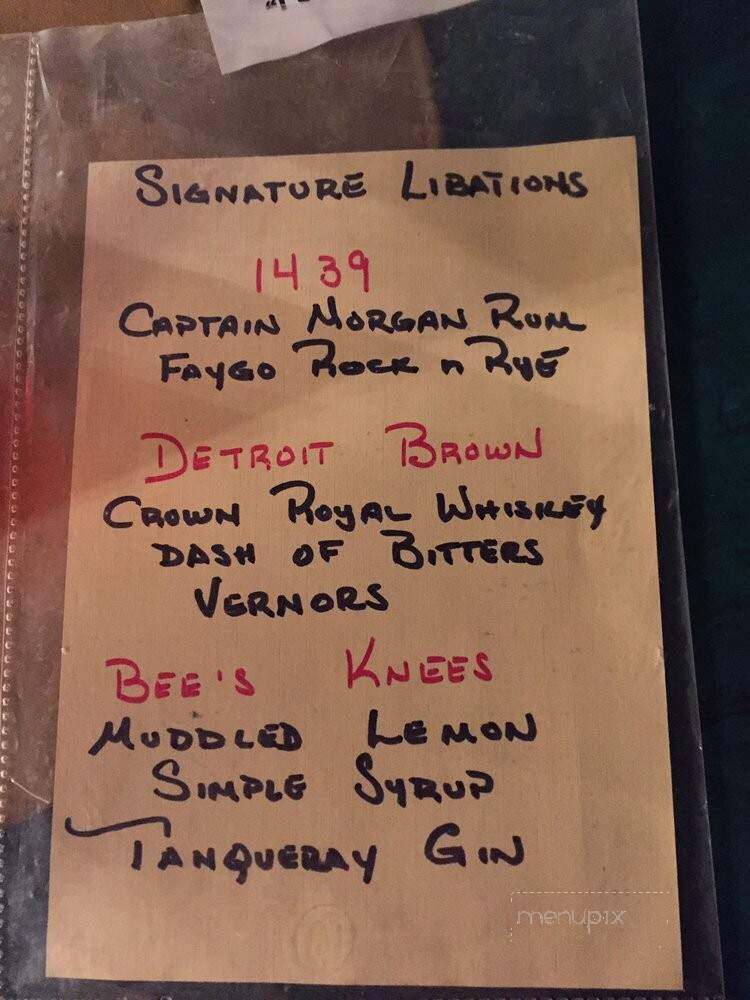 SIGNATURE LIBATIONS
1439
CAPTAIN MORGAN RUM
FAYGO ROCK n RYE
DETROIT BROWN
CROWN ROYAL WHISKEY
DASH OF BITTERS
VERNORS
BEE'S KNEES
MUDDLED LEMON
SIMPLE SYRUP
TANQUERAY GIN
menupix